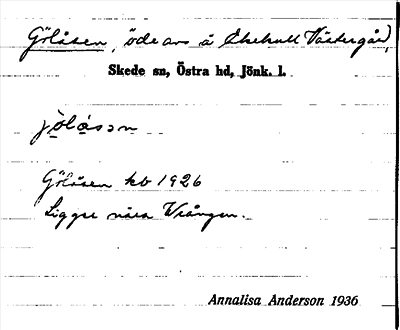 Gölåsen, öde avs å Ekehult Västergård,
Skede sn, Östra hd, Jönk. l.
jö̀låsən
Gölåsen kb 1926
Ligger nära Vrången.
Annalisa Anderson 1936